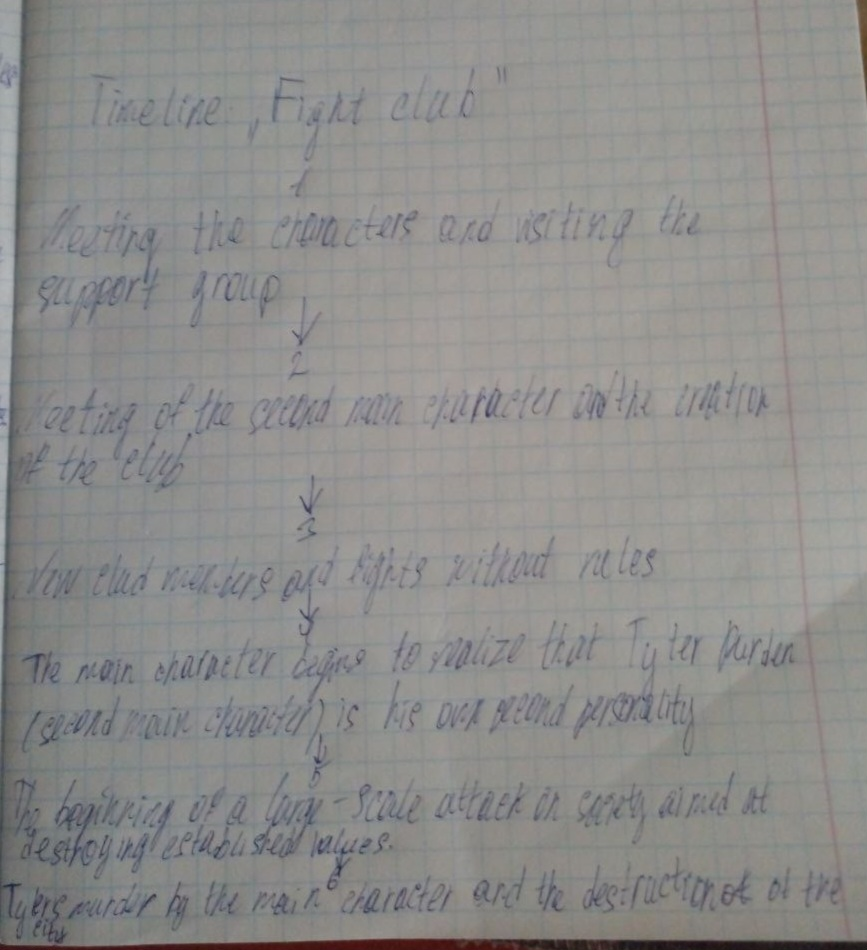 Timeline: „Fight club"
1
Meeting the characters and visiting the
support group
↓
2
Meeting of the second main character and the creation
of the club
↓
3
New club members and fights without rules
↓
The main character begins to realize that Tyler Durden
(second main character) is his own second personality
↓
5
The beginning of a large-scale attack on society aimed at
destroying established values.
↓
6
Tylers murder by the main character and the destruction of the
city